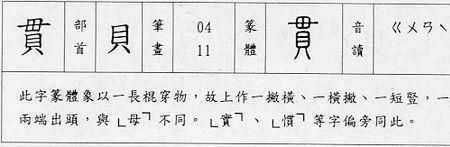 貫 部首 貝 筆畫 04 11 篆體 貫 音讀 ㄍㄨㄢˋ
此字篆體象以一長棍穿物，故上作一撇橫、一橫撇、一短豎，一
兩端出頭，與「母」不同。「實」、「慣」等字偏旁同此。